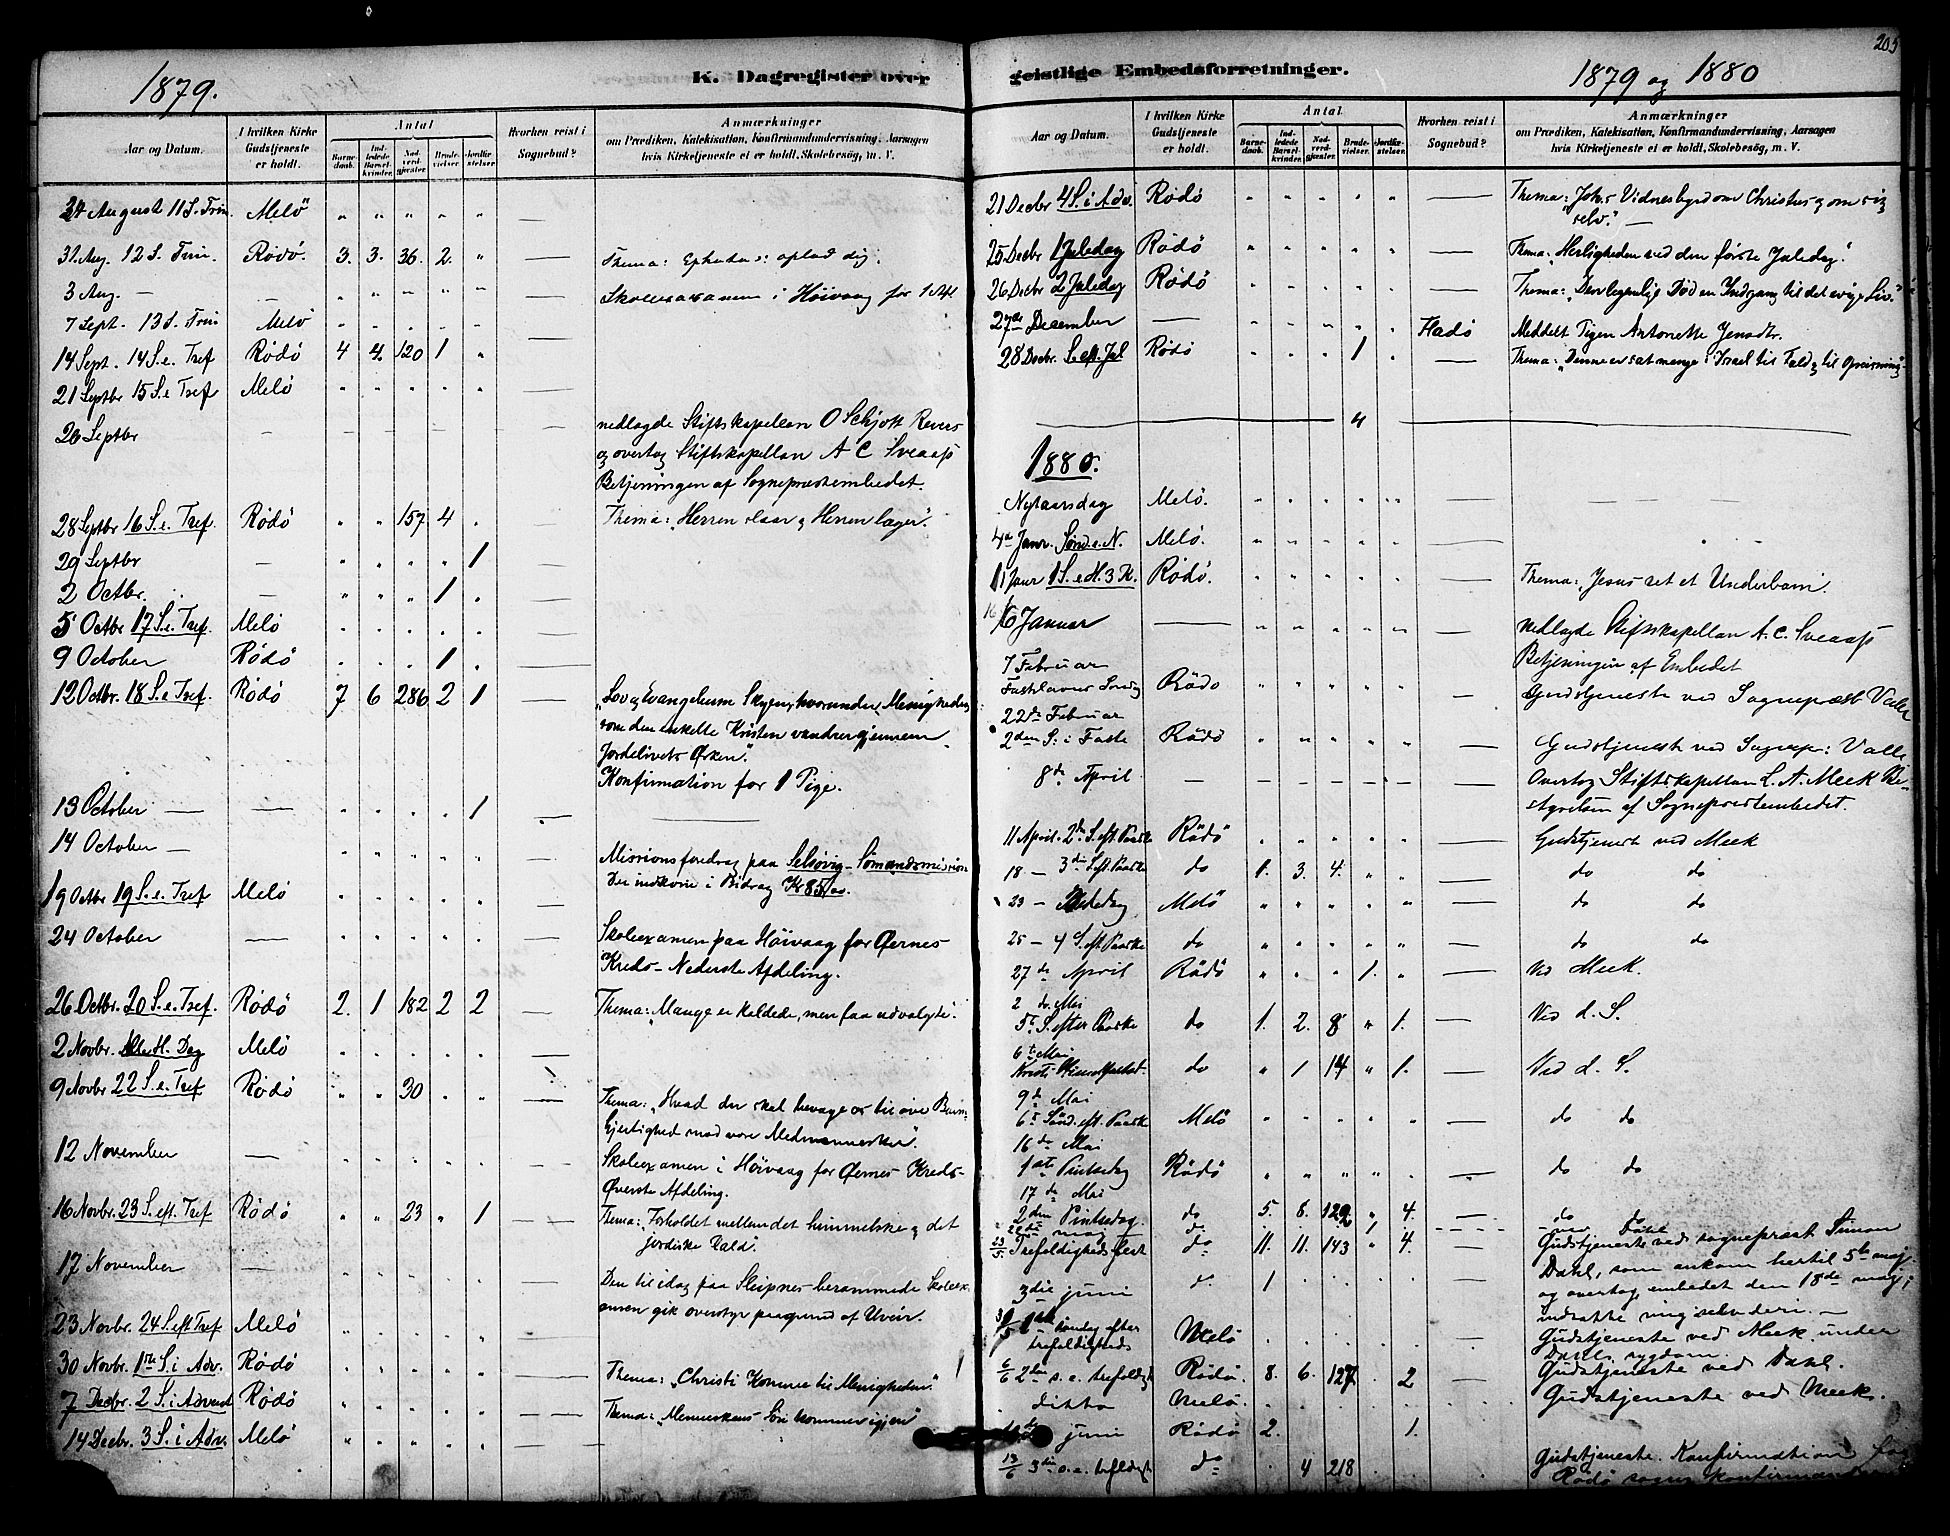 205
1879.
K. Dagregister over
Aar og Datum.
I hvilken Kirke Gudstjeneste er holdt.
Antal
Barnedaab.
Indledede Barselkvinder.
Nadverdgjester.
Brudevielser.
Jordfæstelser.
Hvorhen reist i Sognebud?
Anmærkninger
om Prædiken, Katekisation, Konfirmandundervisning, Aarsagen
hvis Kirketjeneste ei er holdt, Skolebesøg, m. V.
24 August 11 S. Trin. Melö " " " " " —
31 Aug. 12 S. Trin. Rödö. 3. 3. 36. 2. " — Thema: Ephata: oplad dig.
3 Aug. — — " " " " " — Skoleexamen i Höivaag for 1 Afl
7 Sept. 13 S. Trin Melö " " " " " —
14 Sept. 14 S. e. Tref Rödö 4 4. 120 1 " —
21 Septbr 15 S. e Tref Melö " " " " " —
26 Septbr — — — — — — nedlagde Stiftskapellan O Schjött Revers
og overtog Stiftskapellan A C Sveaass
Betjeningen af Sognepræstembedet.
28 Septbr 16 S. e. Tref. Rödö " " 157 4 " — Thema: "Herren slaar og Herren læger".
29 Septbr — " " " " 1 —
2 Octbr. — " " " 1 " —
5 Octbr 17 S. e. Tref. Melö " " " " " —
9 October Rödö " " " 1 " —
12 Octbr. 18 S. e Tref. Rödö 7 6 286 2 1 — "Lov og Evangelium Skyen, hvorunder Menigheden
som den enkelte Kristen vandrer gjennem
Jordelivets Ørken".
Konfirmation for 1 Pige.
13 October — — " " " " 1 — —
14 October — " " " " " — Missionsforedrag paa Selsövig - Sömandsmission
Der indkom i Bidrag Kr 85,00.
19 Octbr 19 S. e. Tref Melö " " " " " —
24 October — " " " " " — Skoleexamen paa Höivaag for Øernes
Kreds - Nederste Afdeling.
26 Octbr. 20 S. e. Tref. Rödö 2. 1 182 2 2 — Thema: "Mange er kaldede, men faa udvalgte".
2 Novbr. Alle H. Dag Melö " " " " " —
9 Novbr 22 S. e. Tref Rödö " " 30 " " — Thema: "Hvad der skal bevæge os til at öve Barm-
hjertighed mod vore Medmennesker".
12 November — " " " " " — Skoleexamen i Höivaag for Øernes Kreds-
Øverste Afdeling.
16 Novbr. 23 S. eft. Tref Rödö " " 23 " 1 — Thema: "Forholdet mellem det himmelske og det
jordiske Kald".
17 November — " " " " " — Den til idag paa Sleipnes berammede Skoleex-
amen gik overstyr paagrund af Uveir.
23 Novbr. 24 S. eft Tref Melö " " " " " —
30 Novbr. 1ste S. i Adv. Rödö " " " " " — Thema: "Christi Komme til Menigheden."
7 Decbr. 2 S. i Advent Rödö " " " " " — Thema: "Menneskens Sön kommer igjen"
14 Decbr. 3 S. i Adv. Melö " " " " " —
geistlige Embedsforretninger.
1879 og 1880
Aar og Datum.
I hvilken Kirke Gudstjeneste er holdt.
Antal
Barnedaab.
Indledede Barselkvinder.
Nadverdgjester.
Brudevielser.
Jordfæstelser.
Hvorhen reist i Sognebud?
Anmærkninger
om Prædiken, Katekisation, Konfirmandundervisning, Aarsagen
hvis Kirketjeneste ei er holdt, Skolebesøg, m. V.
21 Decbr 4 S. i Adv. Rödö " " " " " — Thema: "Johs Vidnesbyrd om Christus og om sig
selv". —
25 Decbr 1 Juledag Rödö " " " " " — Thema: "Herligheden ved den første Juledag".
26 Decbr 2 Juledag Rödö " " " " " — Thema: "Den legemlige Död en Indgang til det evige Liv."
27de December — " " " " " Fladö Meddelt Pigen Antonette Jensdtr.
28 Decbr. S. eft. Jul Rödö " " " 1 " — Thema: "Denne er sat mange i Israel til Fald og til Opreisning"
1880.
Nytaarsdag Melö. " " " " " — —
4de Janr. Sönd. e. N. Melö. " " " " " —
11 Janr 1 S. e. H. 3 K. Rödö. " " " " " — Thema: "Jesus ret et Underbarn.
16 Januar — " " " " " — Nedlagde Stiftskapellan A. C. Sveaass
Betjeningen af Embedet
7 Februar
Fastelavns Sondag Rödö " " " " " — Gudstjeneste ved Sognepræst Valle
22de Februar
2den S. i Faste Rödö " " " " " — Gudstjenest ved Sognep: Valle
8de April — — — — — — Overtog Stiftskapellan L. A. Meek Be-
styrelsen af Sognepræstembedet.
11 April. 2den S. eft Paaske Rödö " " " " " — Gudstjenest ved Meek
18 — 3die S eft. Paaske do 1. 3. 4. " " — do do
23 — Bededag Melö " " " " " — do do
25 — 4 S. eft. Paaske do " " " " " — do do
27de April Rödö " " " 1. " — Ved Meek.
2 do. Mai
5te S. efter Paaske do 1. 2. 8 " 1. — Ved d. S.
6te Mai
Kristi Himmelfartsd. do " 1 14 " 1. — Ved d. S.
9de Mai
6te Sönd. eft. Paaske Melö " " " " " — do do
16de Mai
1ste Pintsedag Rödö " " " " " — do do
17de Mai
2den Pintsedag do 5. 8. 129 " 4. — do do
22de maj do " " " 1 " — ved Dahl
23/5 Trefoldigheds fest do 11. 11. 143 " 4. — Gudstjeneste ved sognepræst Simon
Dahl, som ankom hertil 5te maj
og overtog embedet den 18de maj;
indsatte mig selv deri. —
3die juni do 1 . . . . —
30/5 1ste söndag efter
trefoldigheds Melö . . . . . — Gudstjeneste ved Meek under
Dahls sygdom.
6/6 2den s. e. trefoldigh Rödö. 8. 6. 127 . 2 — Gudstjeneste ved Dahl.
ditto Melö. . . . . . . Gudstjeneste ved Meek.
juni Rödö 2. 1.
13/6 3die s. e. trefoldigh do . 4 218 . . . Gudstjeneste. Konfirmation for
Rödö sogns konfirmander